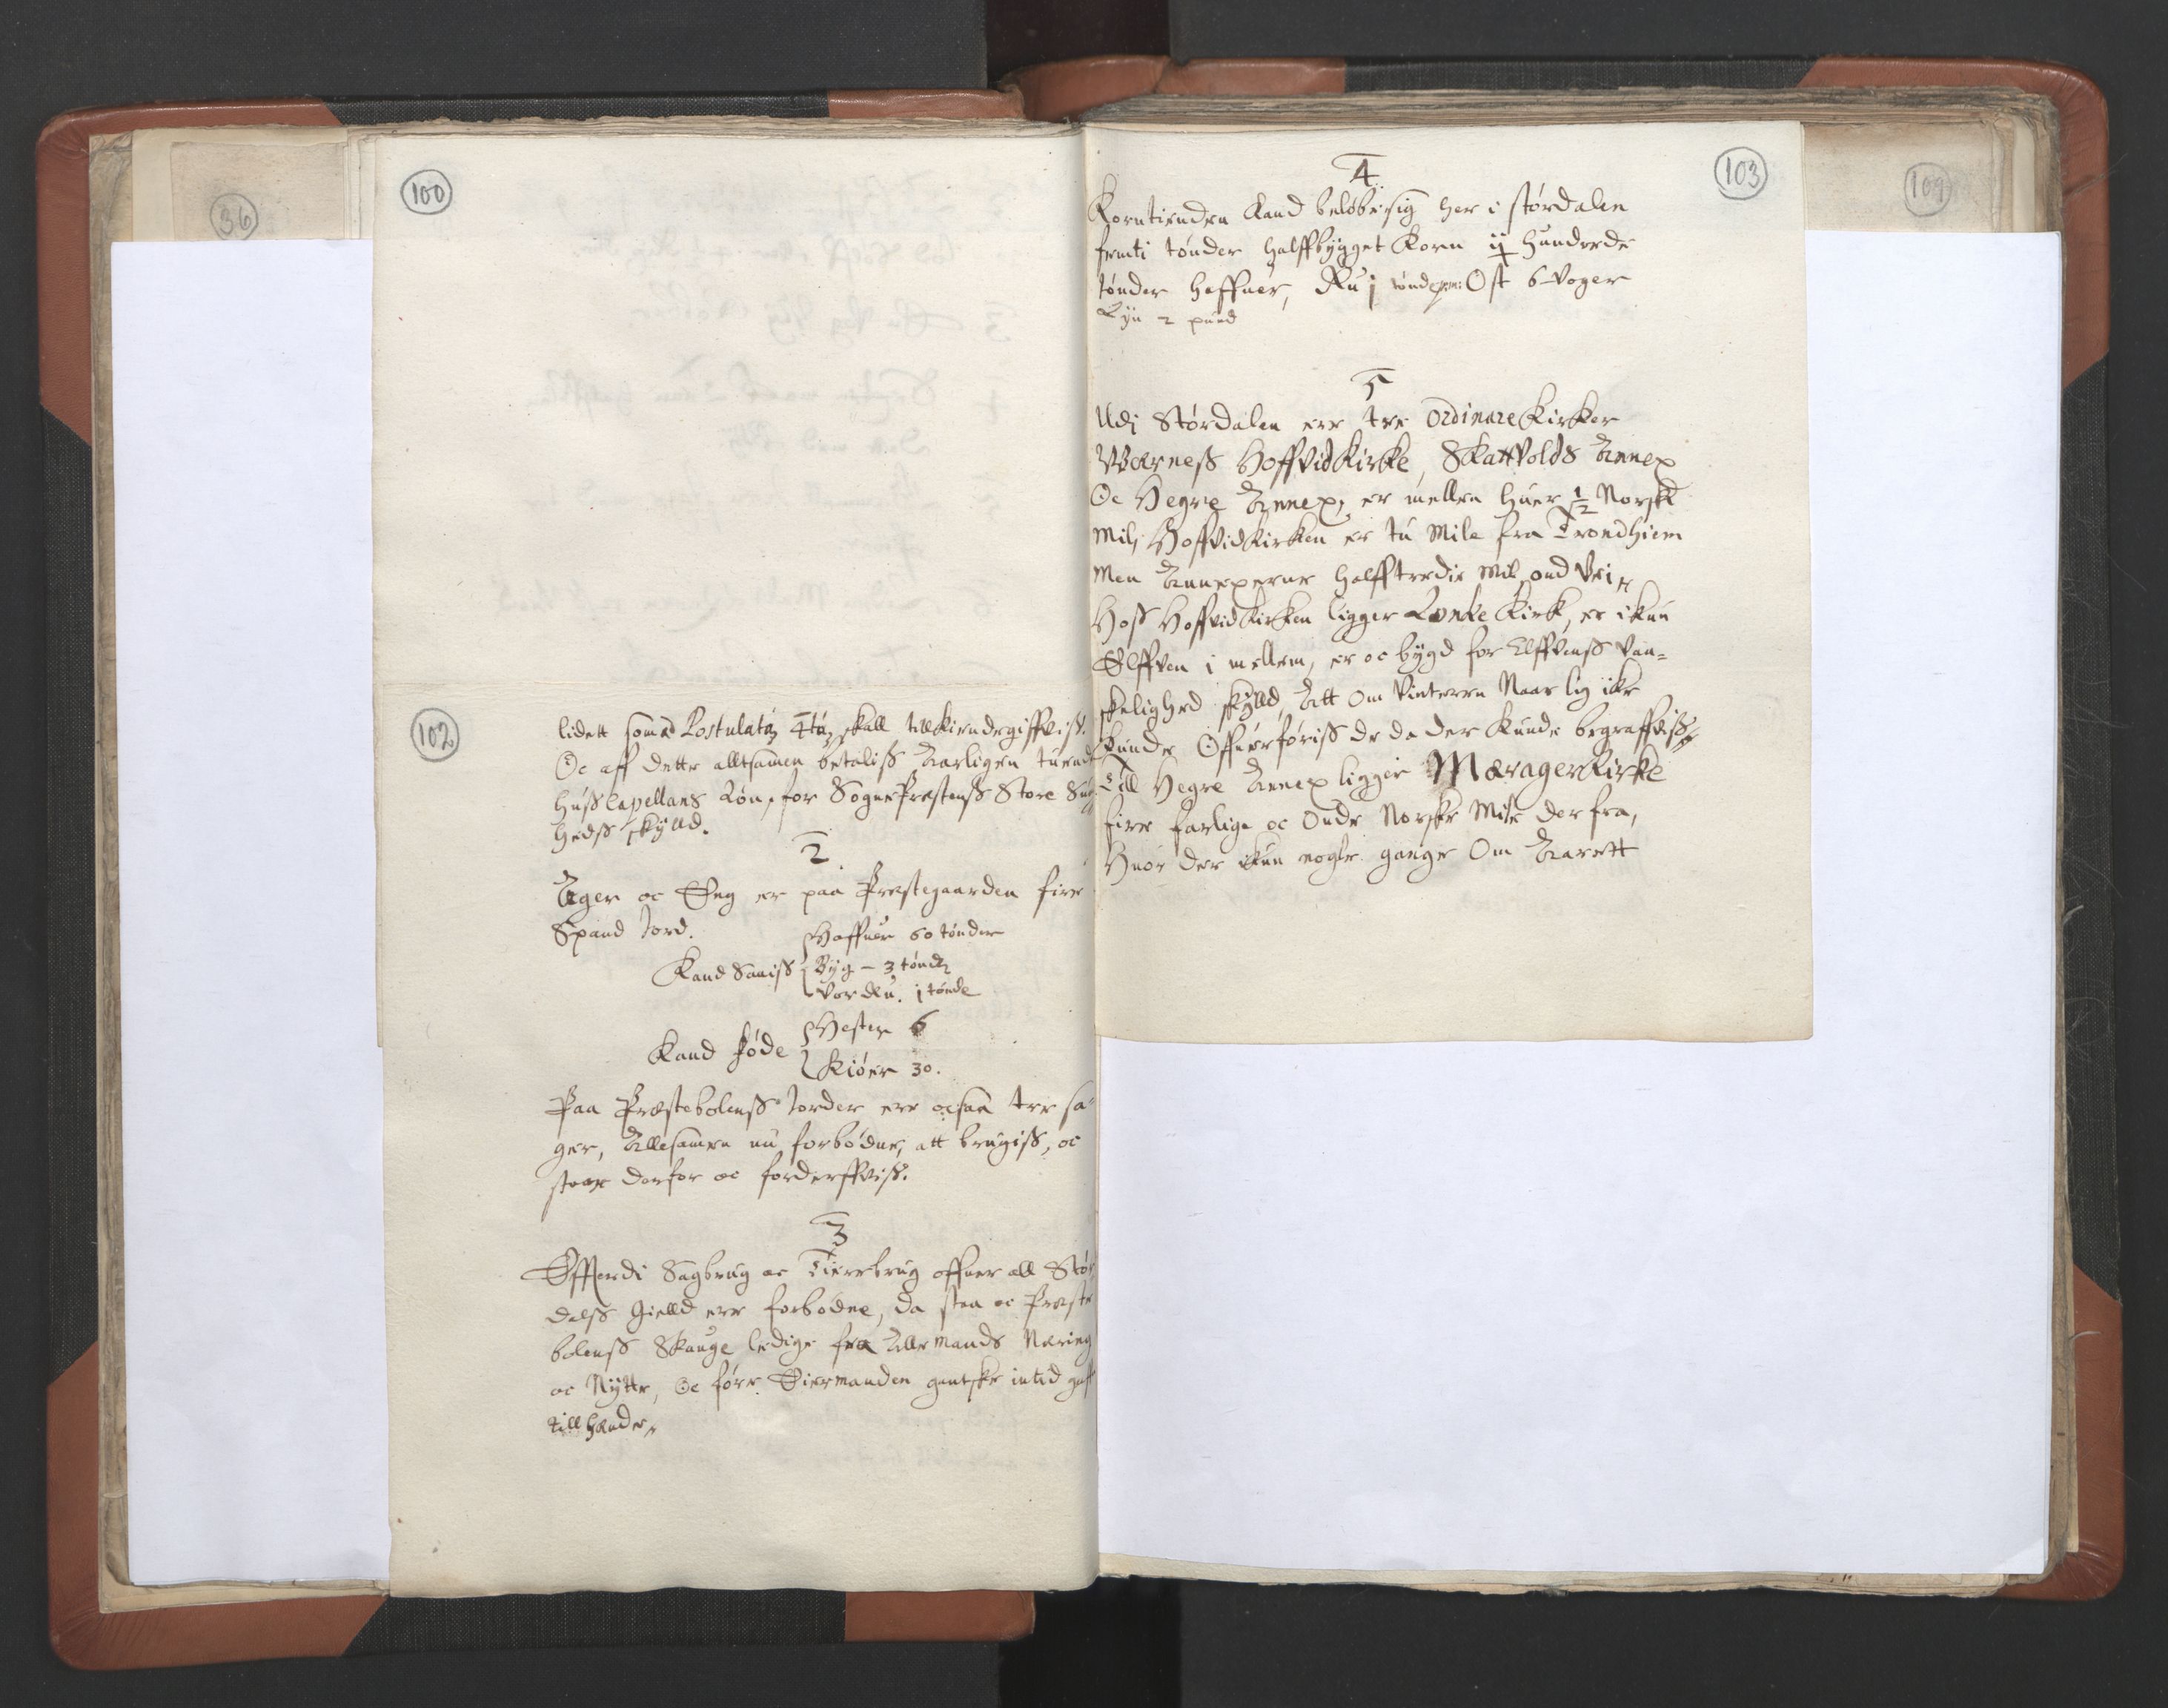 36
100
102
lidett som Postulatum 4tum skall tilkiendegiffvis.
Oc aff dette alltsamen betaliss Aarligen tuende
hussCapellans Løn, for SognePrestenss Store
hedss skylld.
2
Ager oc Eng er paa Præstegaarden fire
Spand Jord.
Kand Saaiss
Haffuer 60 tønder
Byg - 3 tønder
i tønde
Kand føde
Hester 6
Kiøer 30.
Paa Præstebolenss Jorder ere ocsaa tre sa-
ger, Allesamen nu forbødne, att brugiss, oc
staar derfor oc forderffvis.
3
Efftterdi Sagbrug oc Tierebrug offuer all Stør
dalss Gielld ere forbødne, da staa oc Præste
bolenss Skouge ledige fra Allermands Næring
oc Nytte, Oc føre Eiermanden gantske intid gaffn
till hænder,
103
109
4
Korntienden Kand beløbe sig her i størdalen
femti tønder halffbygget Korn ij hundrede
tønder haffuer, Ru j tønde Ost 6 Voger
2 pund
5
Udj Størdalen ere tre Ordinare Kirker
Værness HoffvidKirke, Skattvolds Annex
Oc Hegre Annex, er mellen huer 1/2 Norsk
Mil, HoffvidKirken er tu Mile fra Trondhiem
Men Annexerne halfftredie Mil ond Vei,
Hoss Hoffvidkirken ligger Lønke Kirk, er ikun
Elffven i mellem, er oc bygd for Elffvenss Van-
skelighed skylld, Att om Vinteren Naar lig ikke
kunde Offuerføriss de da der kunde begraffviss,
Till Hegre Annex ligger MæragerKirke
fire farlige oc Onde Norske Mile der fra,
Huor der ikun nogle gange Om Aarett